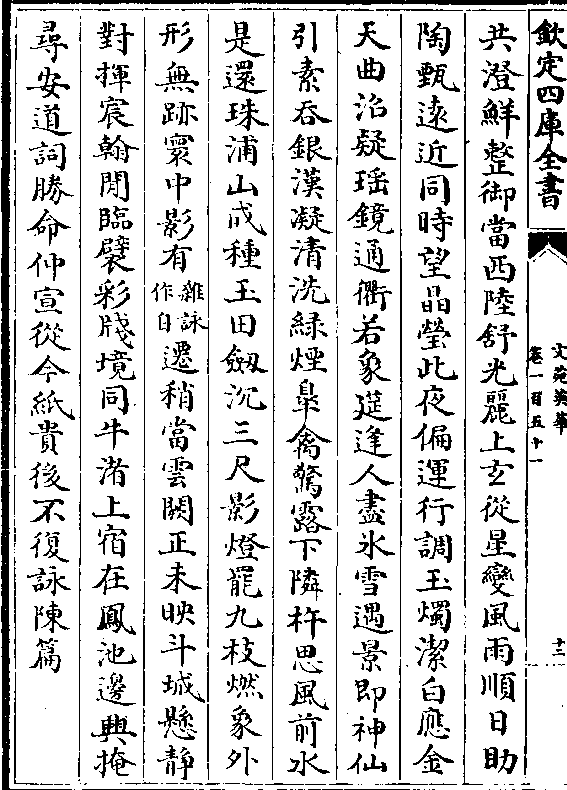 欽定四庫全書
文苑英華
卷一百五十一
十三
共澄鮮整御當西陸舒光麗上玄從星變風雨順日助
陶甄遠近同時望晶瑩此夜偏運行調玉燭潔白應金
天曲沼疑瑶鏡通衢若象筵逢人盡氷雪遇景即神仙
引素吞銀漢凝清洗緑煙臯禽驚露下隣杵思風前水
是還珠浦山成種玉田劔沉三尺影燈罷九枝燃象外
形無跡寰中影有雜詠作自遷稍當雲闕正未映斗城懸静
對揮宸翰閒臨襞彩牋境同牛渚上宿在鳳池邊興掩
尋安道詞勝命仲宣從今紙貴後不復詠陳篇